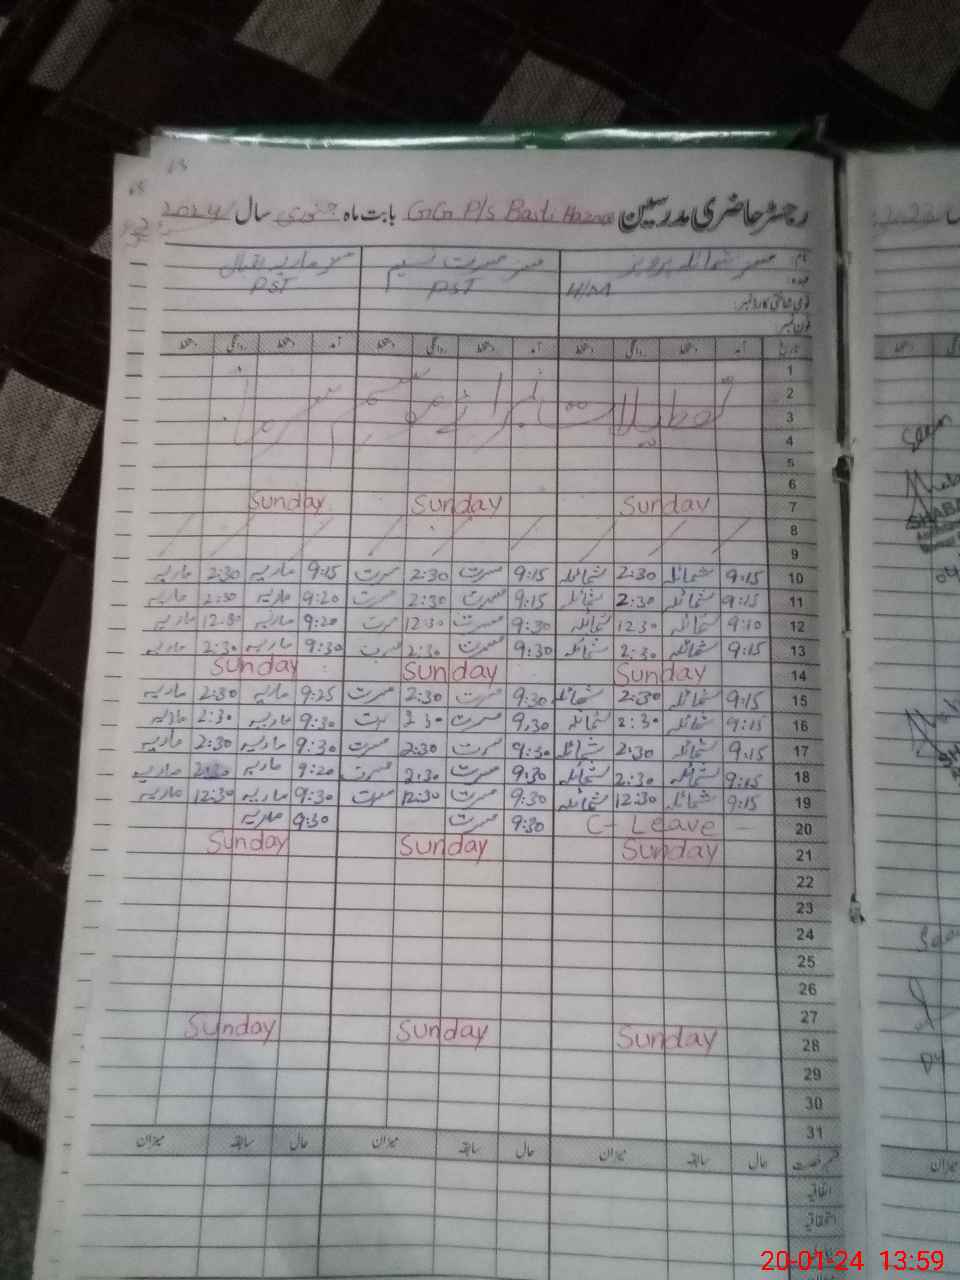 رجسٹر حاضری مدرسین GGP/S Basti Hazara بابت ماہ جنوری سال 2024
نام: مسز شمائلہ پرویز مسز مسرت نسیم مسز ماریہ اقبال
عہدہ: H/M PST PST
قومی شناختی کارڈ نمبر:
فون نمبر:
تاریخ آمد دستخط روانگی دستخط آمد دستخط روانگی دستخط آمد دستخط روانگی دستخط
1
2
3 تعطیلات موسم سرما
4
5
6
7 Sunday Sunday Sunday
8
9
10 9:15 شمائلہ 2:30 شمائلہ 9:15 مسرت 2:30 مسرت 9:15 ماریہ 2:30 ماریہ
11 9:15 شمائلہ 2:30 شمائلہ 9:15 مسرت 2:30 مسرت 9:20 ماریہ 2:30 ماریہ
12 9:10 شمائلہ 12:30 شمائلہ 9:30 مسرت 12:30 مسرت 9:20 ماریہ 12:30 ماریہ
13 9:15 شمائلہ 2:30 شمائلہ 9:30 مسرت 2:30 مسرت 9:30 ماریہ 2:30 ماریہ
14 Sunday Sunday Sunday
15 9:15 شمائلہ 2:30 شمائلہ 9:30 مسرت 2:30 مسرت 9:25 ماریہ 2:30 ماریہ
16 9:15 شمائلہ 2:30 شمائلہ 9:30 مسرت 2:30 مسرت 9:30 ماریہ 2:30 ماریہ
17 9:15 شمائلہ 2:30 شمائلہ 9:30 مسرت 2:30 مسرت 9:30 ماریہ 2:30 ماریہ
18 9:15 شمائلہ 2:30 شمائلہ 9:30 مسرت 2:30 مسرت 9:20 ماریہ 2:30 ماریہ
19 9:15 شمائلہ 12:30 شمائلہ 9:30 مسرت 12:30 مسرت 9:30 ماریہ 12:30 ماریہ
20 C- Leave 9:30 مسرت 9:30 ماریہ
21 Sunday Sunday Sunday
22
23
24
25
26
27
28 Sunday Sunday Sunday
29
30
31
قسم رخصت حال سابقہ میزان حال سابقہ میزان حال سابقہ میزان
اتفاقیہ
استحقاقیہ
Seen
20-01-24 13:59